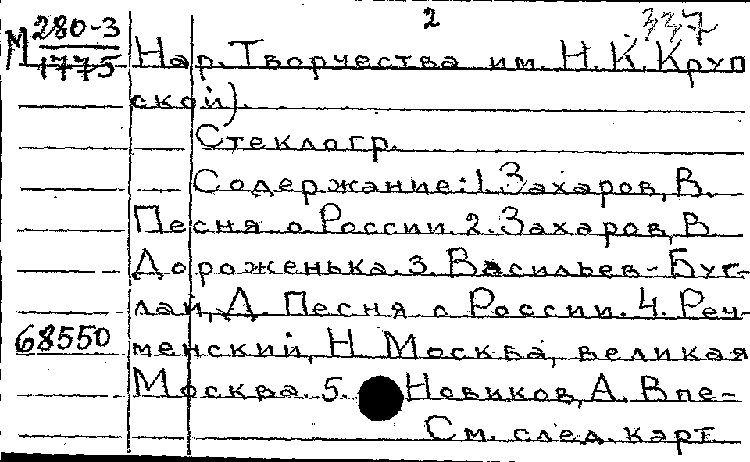 2
337
М 280-3
1775
Нар. Творчества им. Н. К. Круп
ской).
Стеклогр.
Содержание: 1. Захаров, В.
Песня о России. 2. Захаров, В
Дороженька. 3. Васильев-Буг-
лай, Д. Песня о России. 4. Реч-
68550
менский, Н. Москва, великая
Москва. 5. Новиков, А. Впе-
См. след. карт